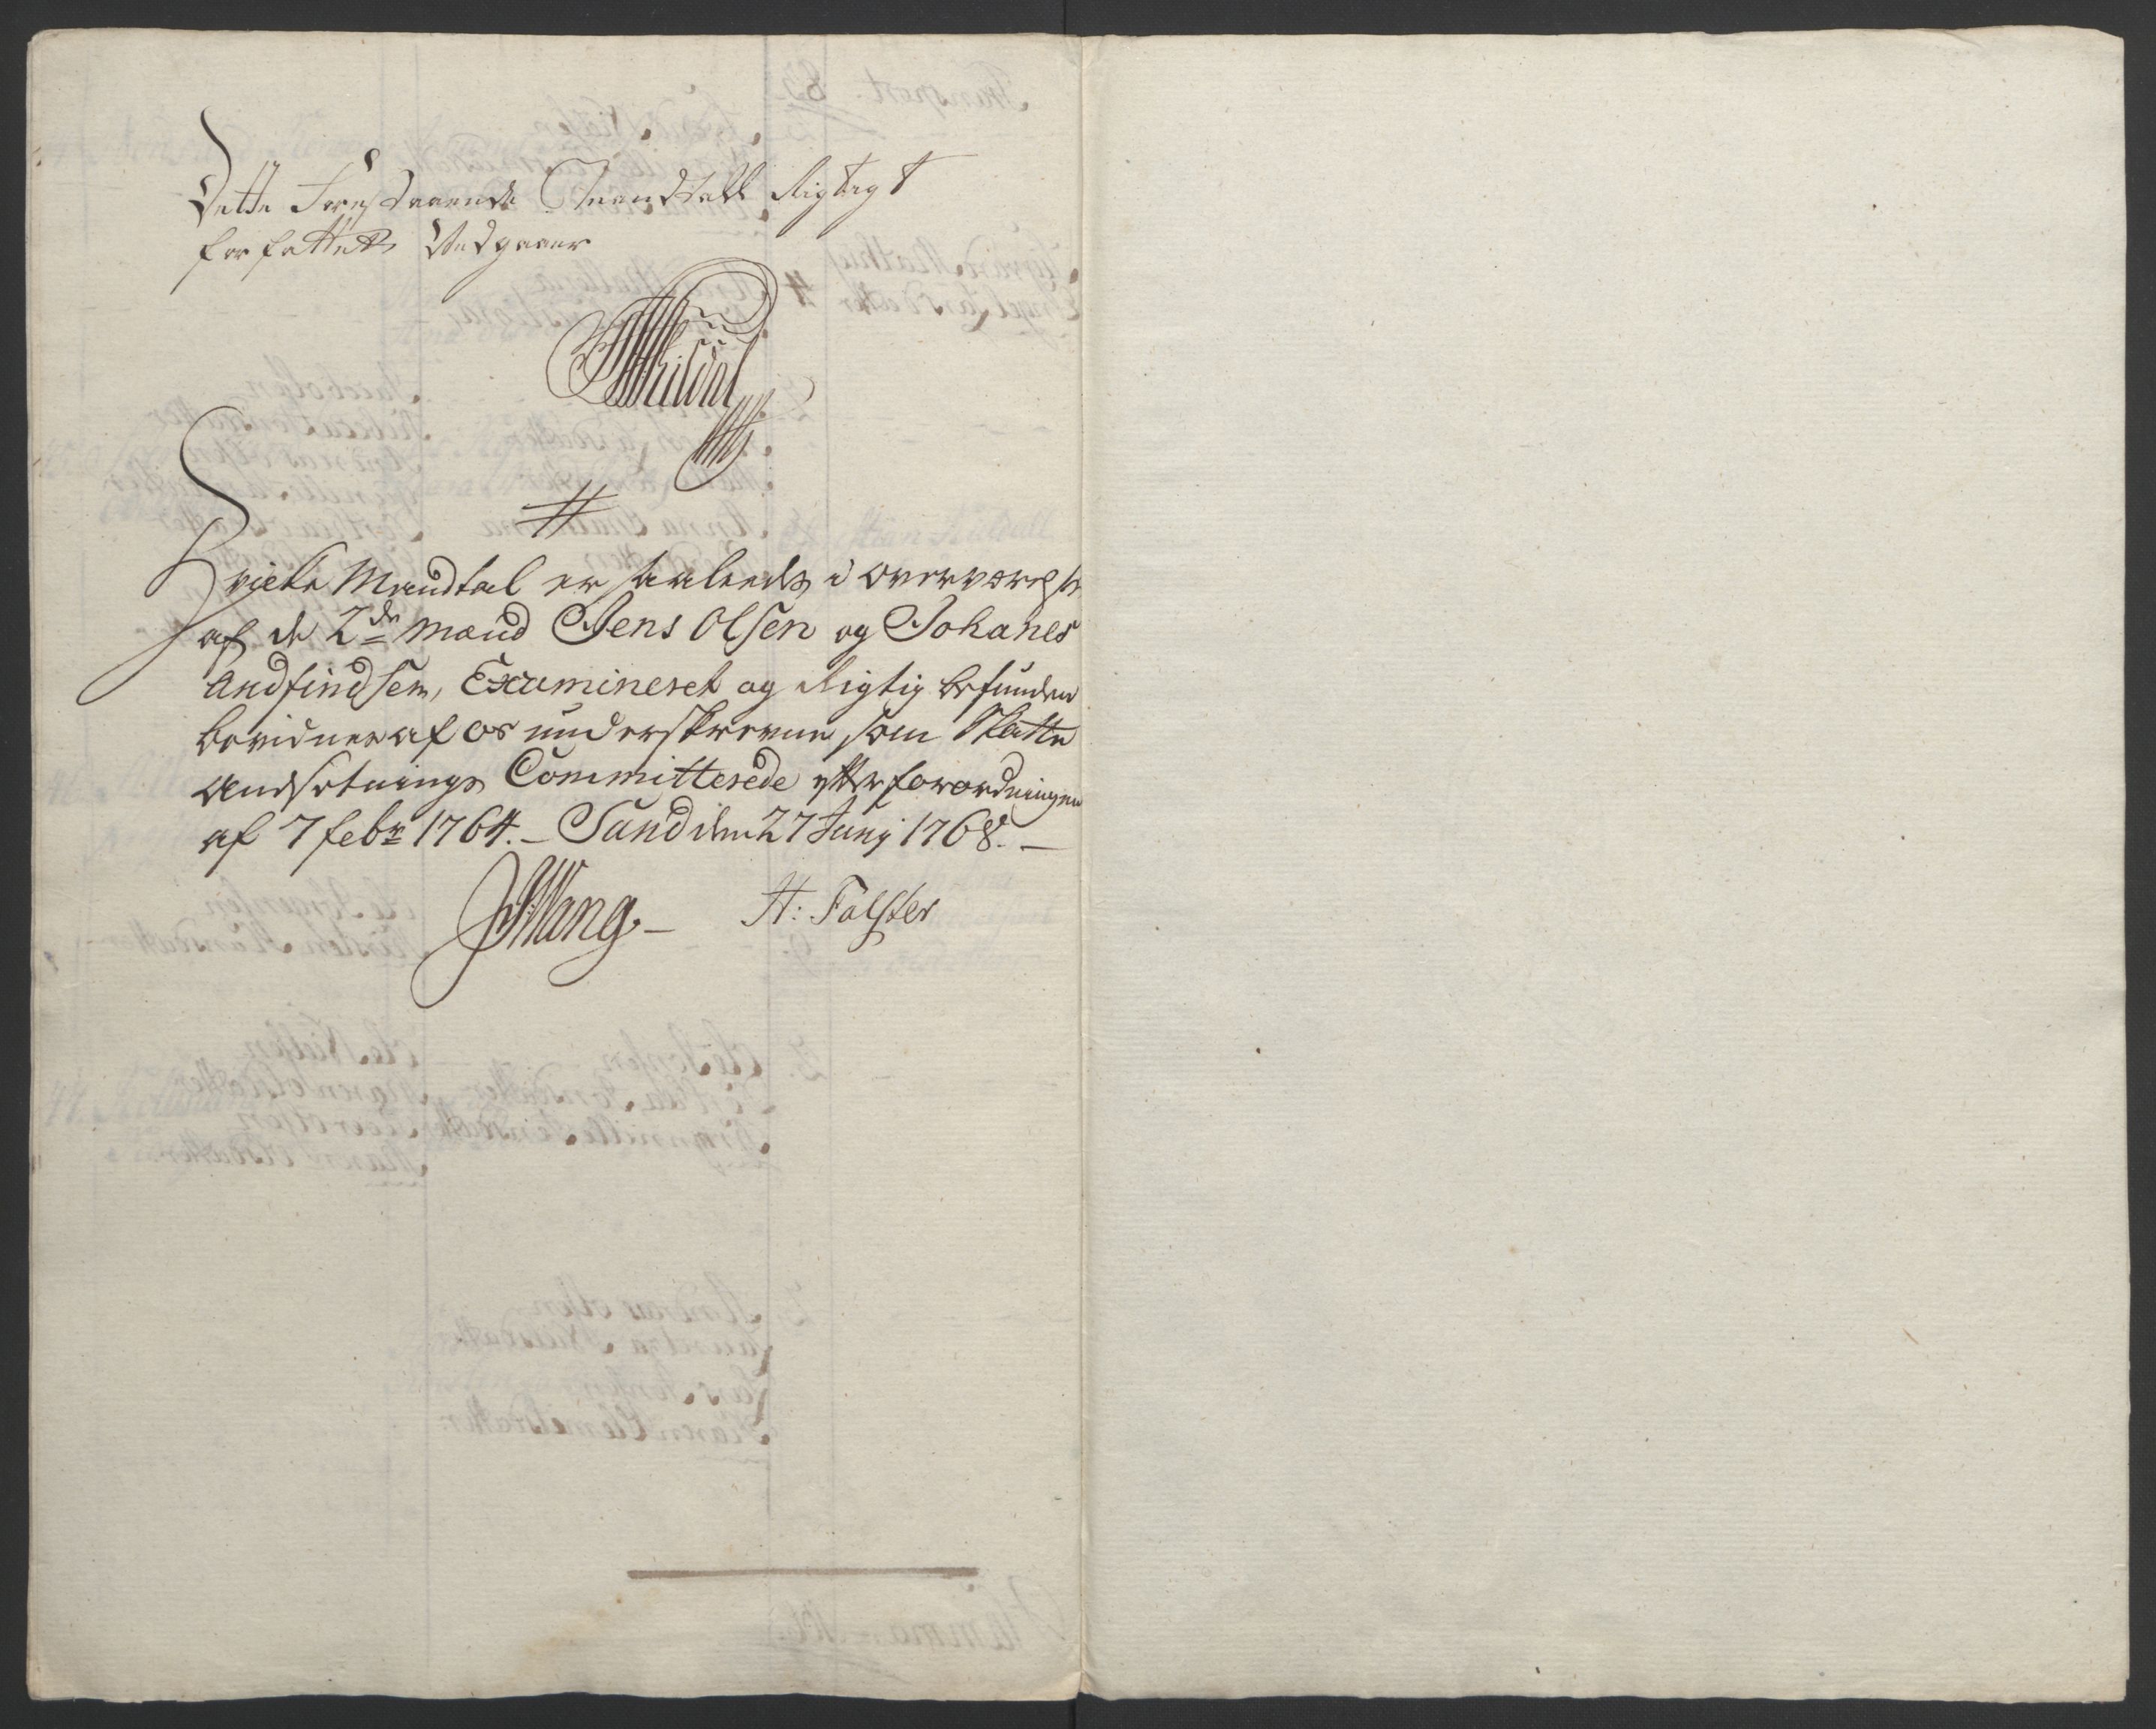 Dette Forestaaende Mandtall Rigtigt
forfattet Vedgaaer
Hvilke Mandtal er saaleeds i overværelse
af de 2de mænd Jens Olsen og Johanes
Andfindsen, Examineret og Rigtig befunden
bevidner af os underskrevne som Skatte
Ansætnings Committerede efter forordningen
af 7 febr 1764. – Sand den 27 Junj 1768. –
JWang. – H: Falster